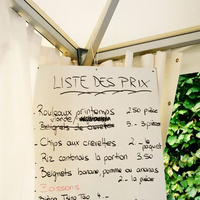 LISTE DES PRIX
Rouleaux printemps 2.50 pièce
viande/
Beignets de crevettes 5.- 3 pièces
- Chips aux crevettes 2.- le paquet
- Riz cantonais la portion 3.50
- Beignets banane, pomme ou ananas
2.- la pièce
Boissons
Tsing Tao 4.-